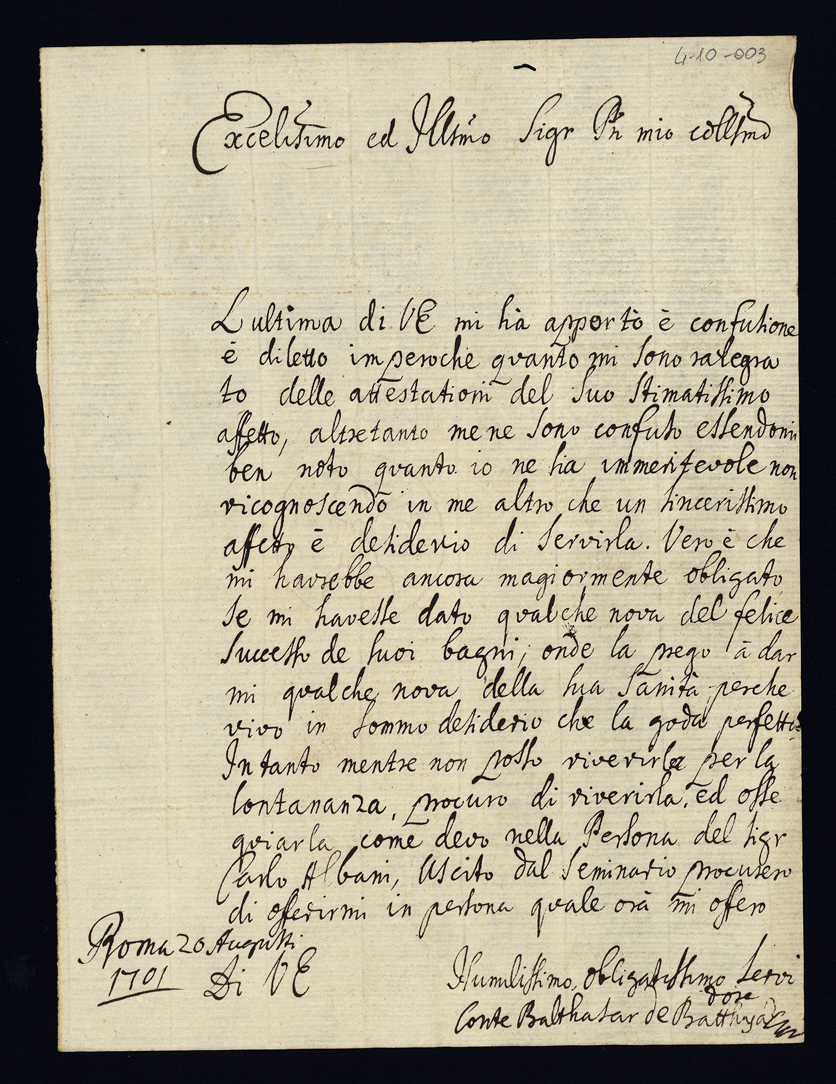 4-10-003
Excelisimo ed Illsmo Sigr Pn mio collsmo
L ultima di VE mi hà apportò è confusione
è diletto imperoche quanto mi sono ralegra
to delle attestationi del suo stimatissimo
affetto, altretanto me ne sono confuso essendomi
ben noto quanto io ne sia immeritevole non
ricognoscendo in me altro che un sincerissimo
affetto è desiderio di servirla. Vero è che
mi havrebbe ancora magiormente obligato
se mi havesse dato qualche nova del felice
successo de suoi bagni, onde la prego à dar
mi qualche nova della sua sanità perche
vivo in sommo desiderio che la goda perfetti
In tanto mentre non posso riverirla per la
lontananza, procuro di riverirla, ed osse
quiarla come devo nella Persona del sigr
Carlo Albani, Uscito dal seminario procurero
di offerirmi in persona quale orà mi offero
Roma 20 Augusti
1701 Di VE
Humilissimo, obligatissimo servi
dore
Conte Balthasar de Batthyán